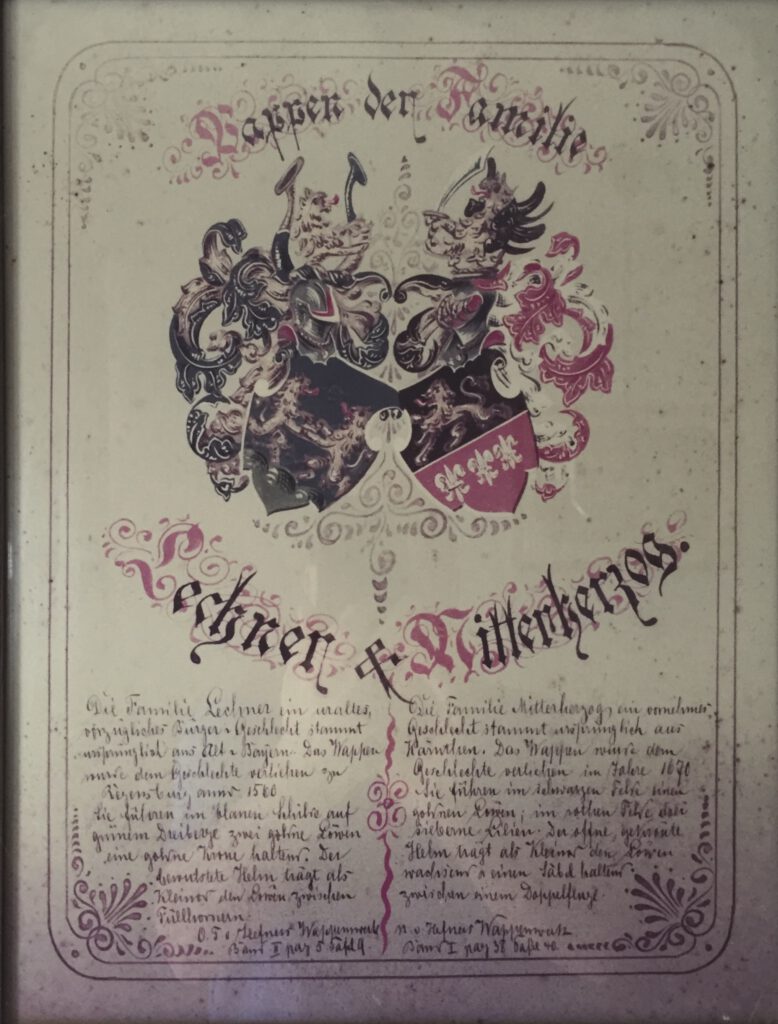 Wappen der Familie
Lechner & Mitterherzog.
Die Familie Lechner ein uraltes,
vorzügliches Bürger-Geschlecht stammt
ursprünglich aus Alt-Bayern. Das Wappen
wurde dem Geschlechte verliehen zu
Regensburg anno 1560
Sie führen im blauen Schilde auf
grünem Dreiberge zwei goldne Löwen
eine goldne Krone haltend. Der
bewulstete Helm trägt als
Kleinod den Löwen zwischen
Füllhörnern.
O. T. v. Hefners Wappenwerk
Band II pag 5 Tafel 9
Die Familie Mitterherzog, ein vornehmes
Geschlecht stammt ursprünglich aus
Kärnthen. Das Wappen wurde dem
Geschlechte verliehen im Jahre 1670
Sie führen im schwarzen Felde einen
goldnen Löwen; im rothen Felde drei
silberne Lilien. Der offne, gekrönte
Helm trägt als Kleinod den Löwen
wachsend einen Säbel haltend
zwischen einem Doppelfluge
n. v. Hefners Wappenwerk
Band I pag 38 Tafel 40